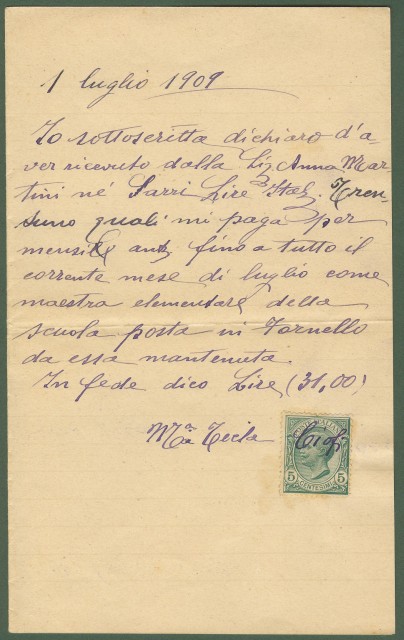 1 luglio 1909
Io sottoscritta dichiaro d'a-
ver ricevuto dalla Sig. Anna Mar-
tini né Sarri Lire Ital. Tren-
tuno quali mi paga per
mensile fino a tutto il
corrente mese di luglio come
maestra elementare della
scuola posta in Tornello
da essa mantenuta.
In fede dico Lire (31,00)
Ma Tecla Ciofi
5 5
CENTESIMI